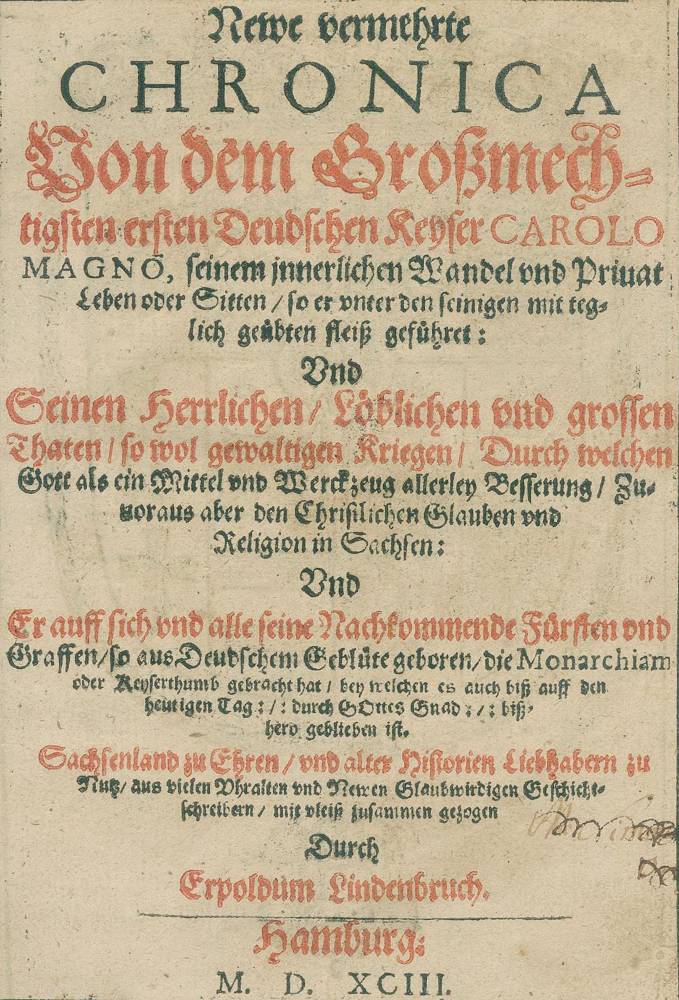 Newe vermehrte
CHRONICA
Von dem Großmech-
tigsten ersten Deudschen Keyser CAROLO
MAGNO, seinem jnnerlichen Wandel vnd Priuat
Leben oder Sitten / so er vnter den seinigen mit teg-
lich geübten fleiß geführet:
Vnd
Seinen Herrlichen / Löblichen vnd grossen
Thaten / so wol gewaltigen Kriegen / Durch welchen
Gott als ein Mittel vnd Werckzeug allerley Besserung / Zu-
uoraus aber den Christlichen Glauben vnd
Religion in Sachsen:
Vnd
Er auff sich vnd alle seine Nachkommende Fürsten vnd
Graffen / so aus Deudschem Geblüte geboren / die Monarchiam
oder Keyserthumb gebracht hat / bey welchen es auch biß auff den
heutigen Tag :/: durch GOttes Gnad :/: biß-
hero geblieben ist.
Sachsenland zu Ehren / vnd alter Historien Liebhabern zu
Nutz / aus vielen Vhralten vnd Newen Glaubwirdigen Geschicht-
schreibern / mit vleiß zusammen gezogen
Durch
Erpoldum Lindenbruch.
Hamburg:
M. D. XCIII.